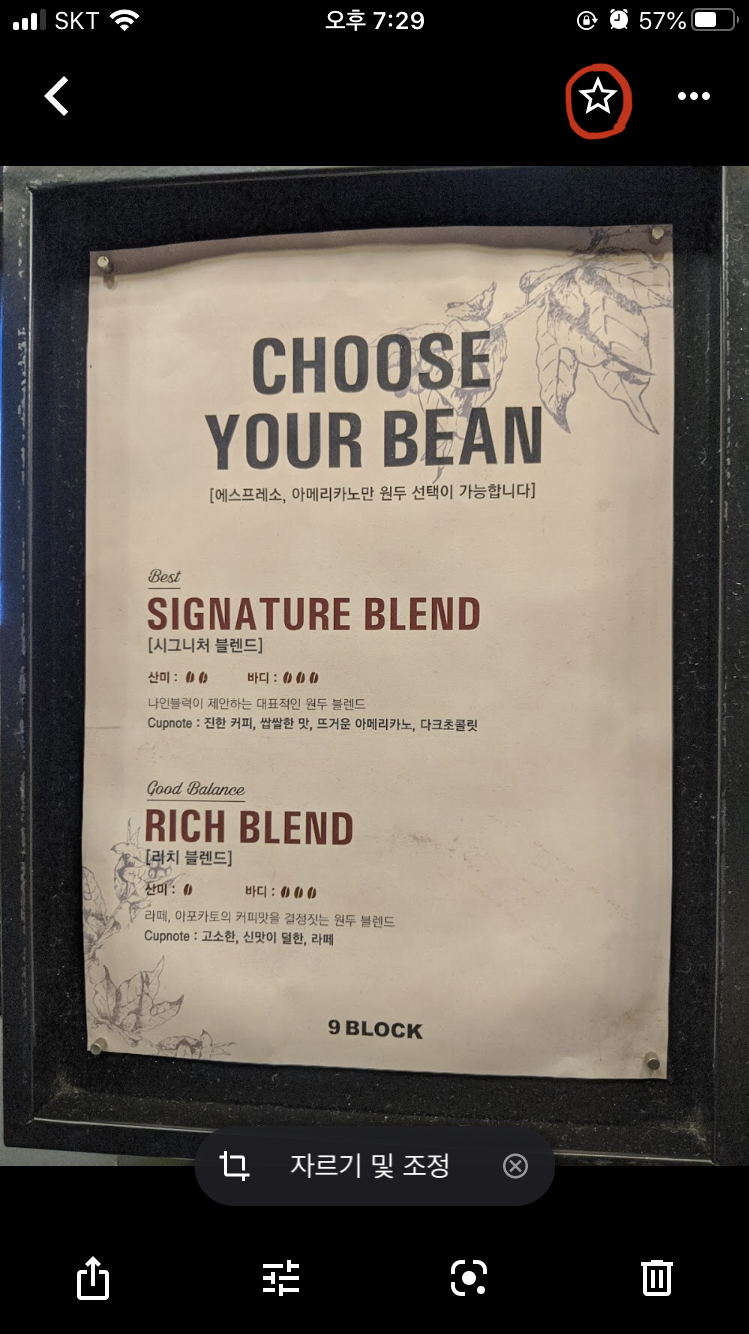 SKT 오후 7:29 57%
CHOOSE
YOUR BEAN
[에스프레소, 아메리카노만 원두 선택이 가능합니다]
Best
SIGNATURE BLEND
[시그니처 블렌드]
산미 : 바디 :
나인블럭이 제안하는 대표적인 원두 블렌드
Cupnote : 진한 커피, 쌉쌀한 맛, 뜨거운 아메리카노, 다크초콜릿
Good Balance
RICH BLEND
[리치 블렌드]
산미 : 바디 :
라떼, 아포카토의 커피맛을 결정짓는 원두 블렌드
Cupnote : 고소한, 신맛이 덜한, 라떼
9 BLOCK
자르기 및 조정